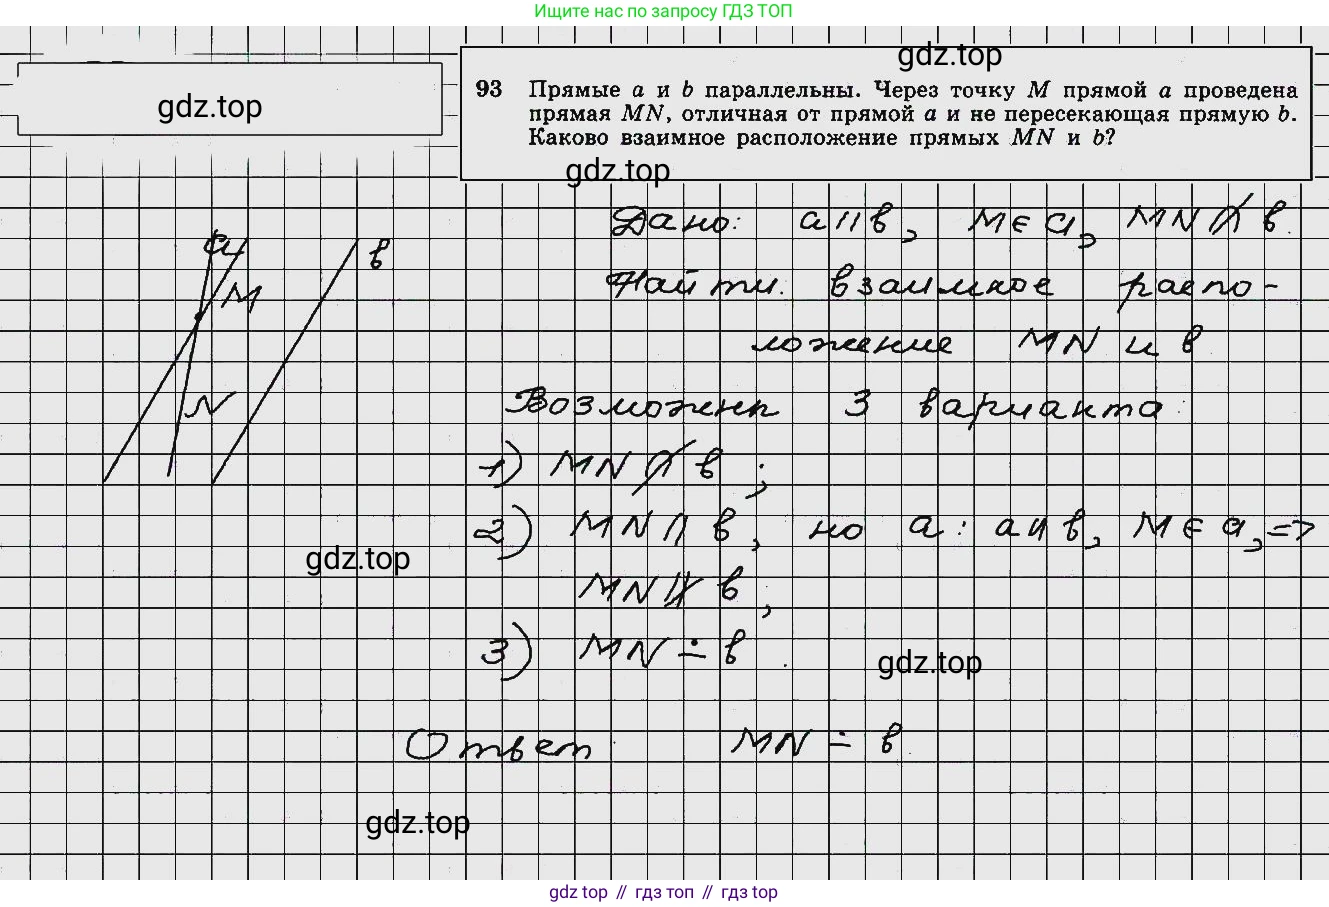 Ищите нас по запросу ГДЗ ТОП
gdz.top
gdz.top
93 Прямые a и b параллельны. Через точку M прямой a проведена
прямая MN, отличная от прямой a и не пересекающая прямую b.
Каково взаимное расположение прямых MN и b?
gdz.top
a
b
M
N
Дано: a || b, M ∈ a, MN ∩̸ b.
Найти: взаимное распо-
ложение MN и b
Возможны 3 варианта
1) MN ∩̸ b;
2) MN ∩ b, но a: a || b, M ∈ a, =>
MN ∦ b;
gdz.top
3) MN ∸ b.
gdz.top
Ответ MN ∸ b
gdz.top
gdz top // гдз топ // gdz top